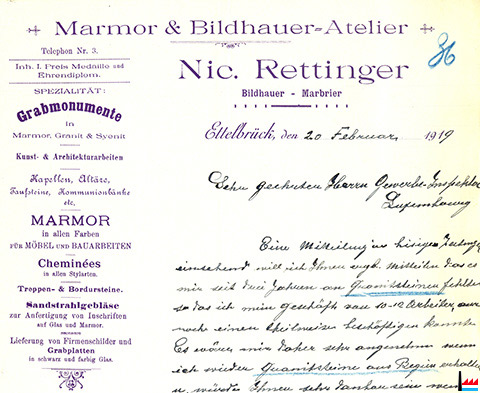 Marmor & Bildhauer-Atelier
Telephon Nr. 3.
Inh. I. Preis Medaille und
Ehrendiplom.
SPEZIALITÄT:
Grabmonumente
in
Marmor, Granit & Syenit
Kunst- & Architekturarbeiten
Kapellen, Altäre,
Taufsteine, Kommunionbänke
etc.
MARMOR
in allen Farben
FÜR MÖBEL UND BAUARBEITEN
Cheminées
in allen Stylarten.
Treppen- & Bordursteine.
Sandstrahlgebläse
zur Anfertigung von Inschriften
auf Glas und Marmor.
Lieferung von Firmenschilder und
Grabplatten
in schwarz und farbig Glas.
Nic. Rettinger
Bildhauer - Marbrier
Ettelbrück, den 20 Februar 1919
Sehr geehrten Herrn Gewerbe-Inspektor
Luxemburg
Eine Mitteilung in hiesigen
einsehend will ich Ihnen mitteilen das es
mir seit drei Jahren an Granitsteinen fehlt
so das ich mein geschäft von 10-12 Arbeiter, nur
noch einen theilweise beschäftigen konnte
Es wäre mir daher sehr angenehm wenn
ich wieder Granitsteine aus Belgien erhalten
u. würde Ihnen sehr dankbar sein wenn